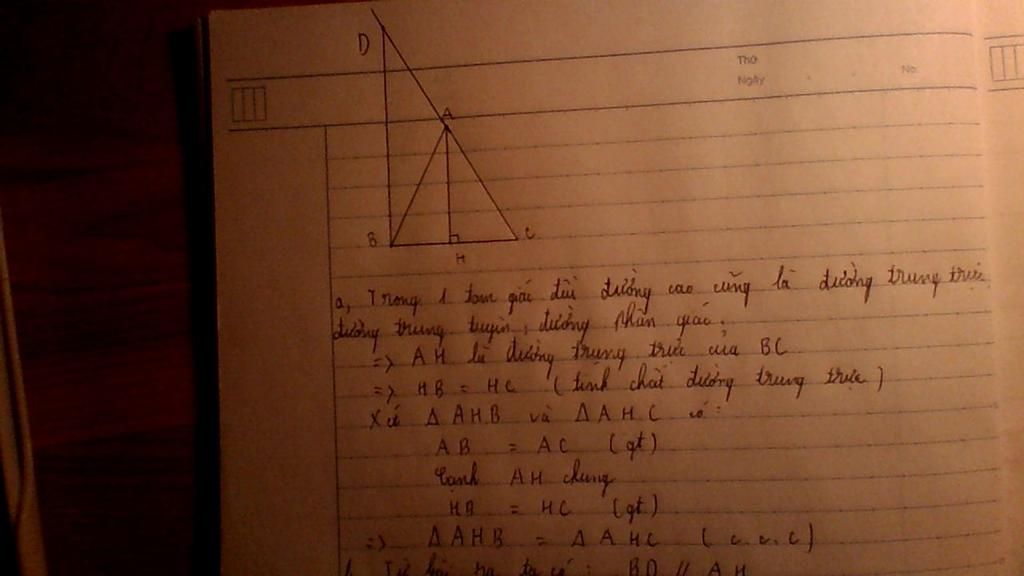 D
Thứ
Ngày
No.
A
B
C
H
a, Trong 1 tam giác đều đường cao cũng là đường trung trực
đường trung tuyến, đường phân giác.
=> AH là đường trung trực của BC
=> HB = HC (tính chất đường trung trực)
Xét Δ AHB và Δ AHC có:
AB = AC (gt)
Cạnh AH chung
HB = HC (gt)
=> Δ AHB = Δ AHC (c.c.c)
Từ bài ra ta có: BD // AH